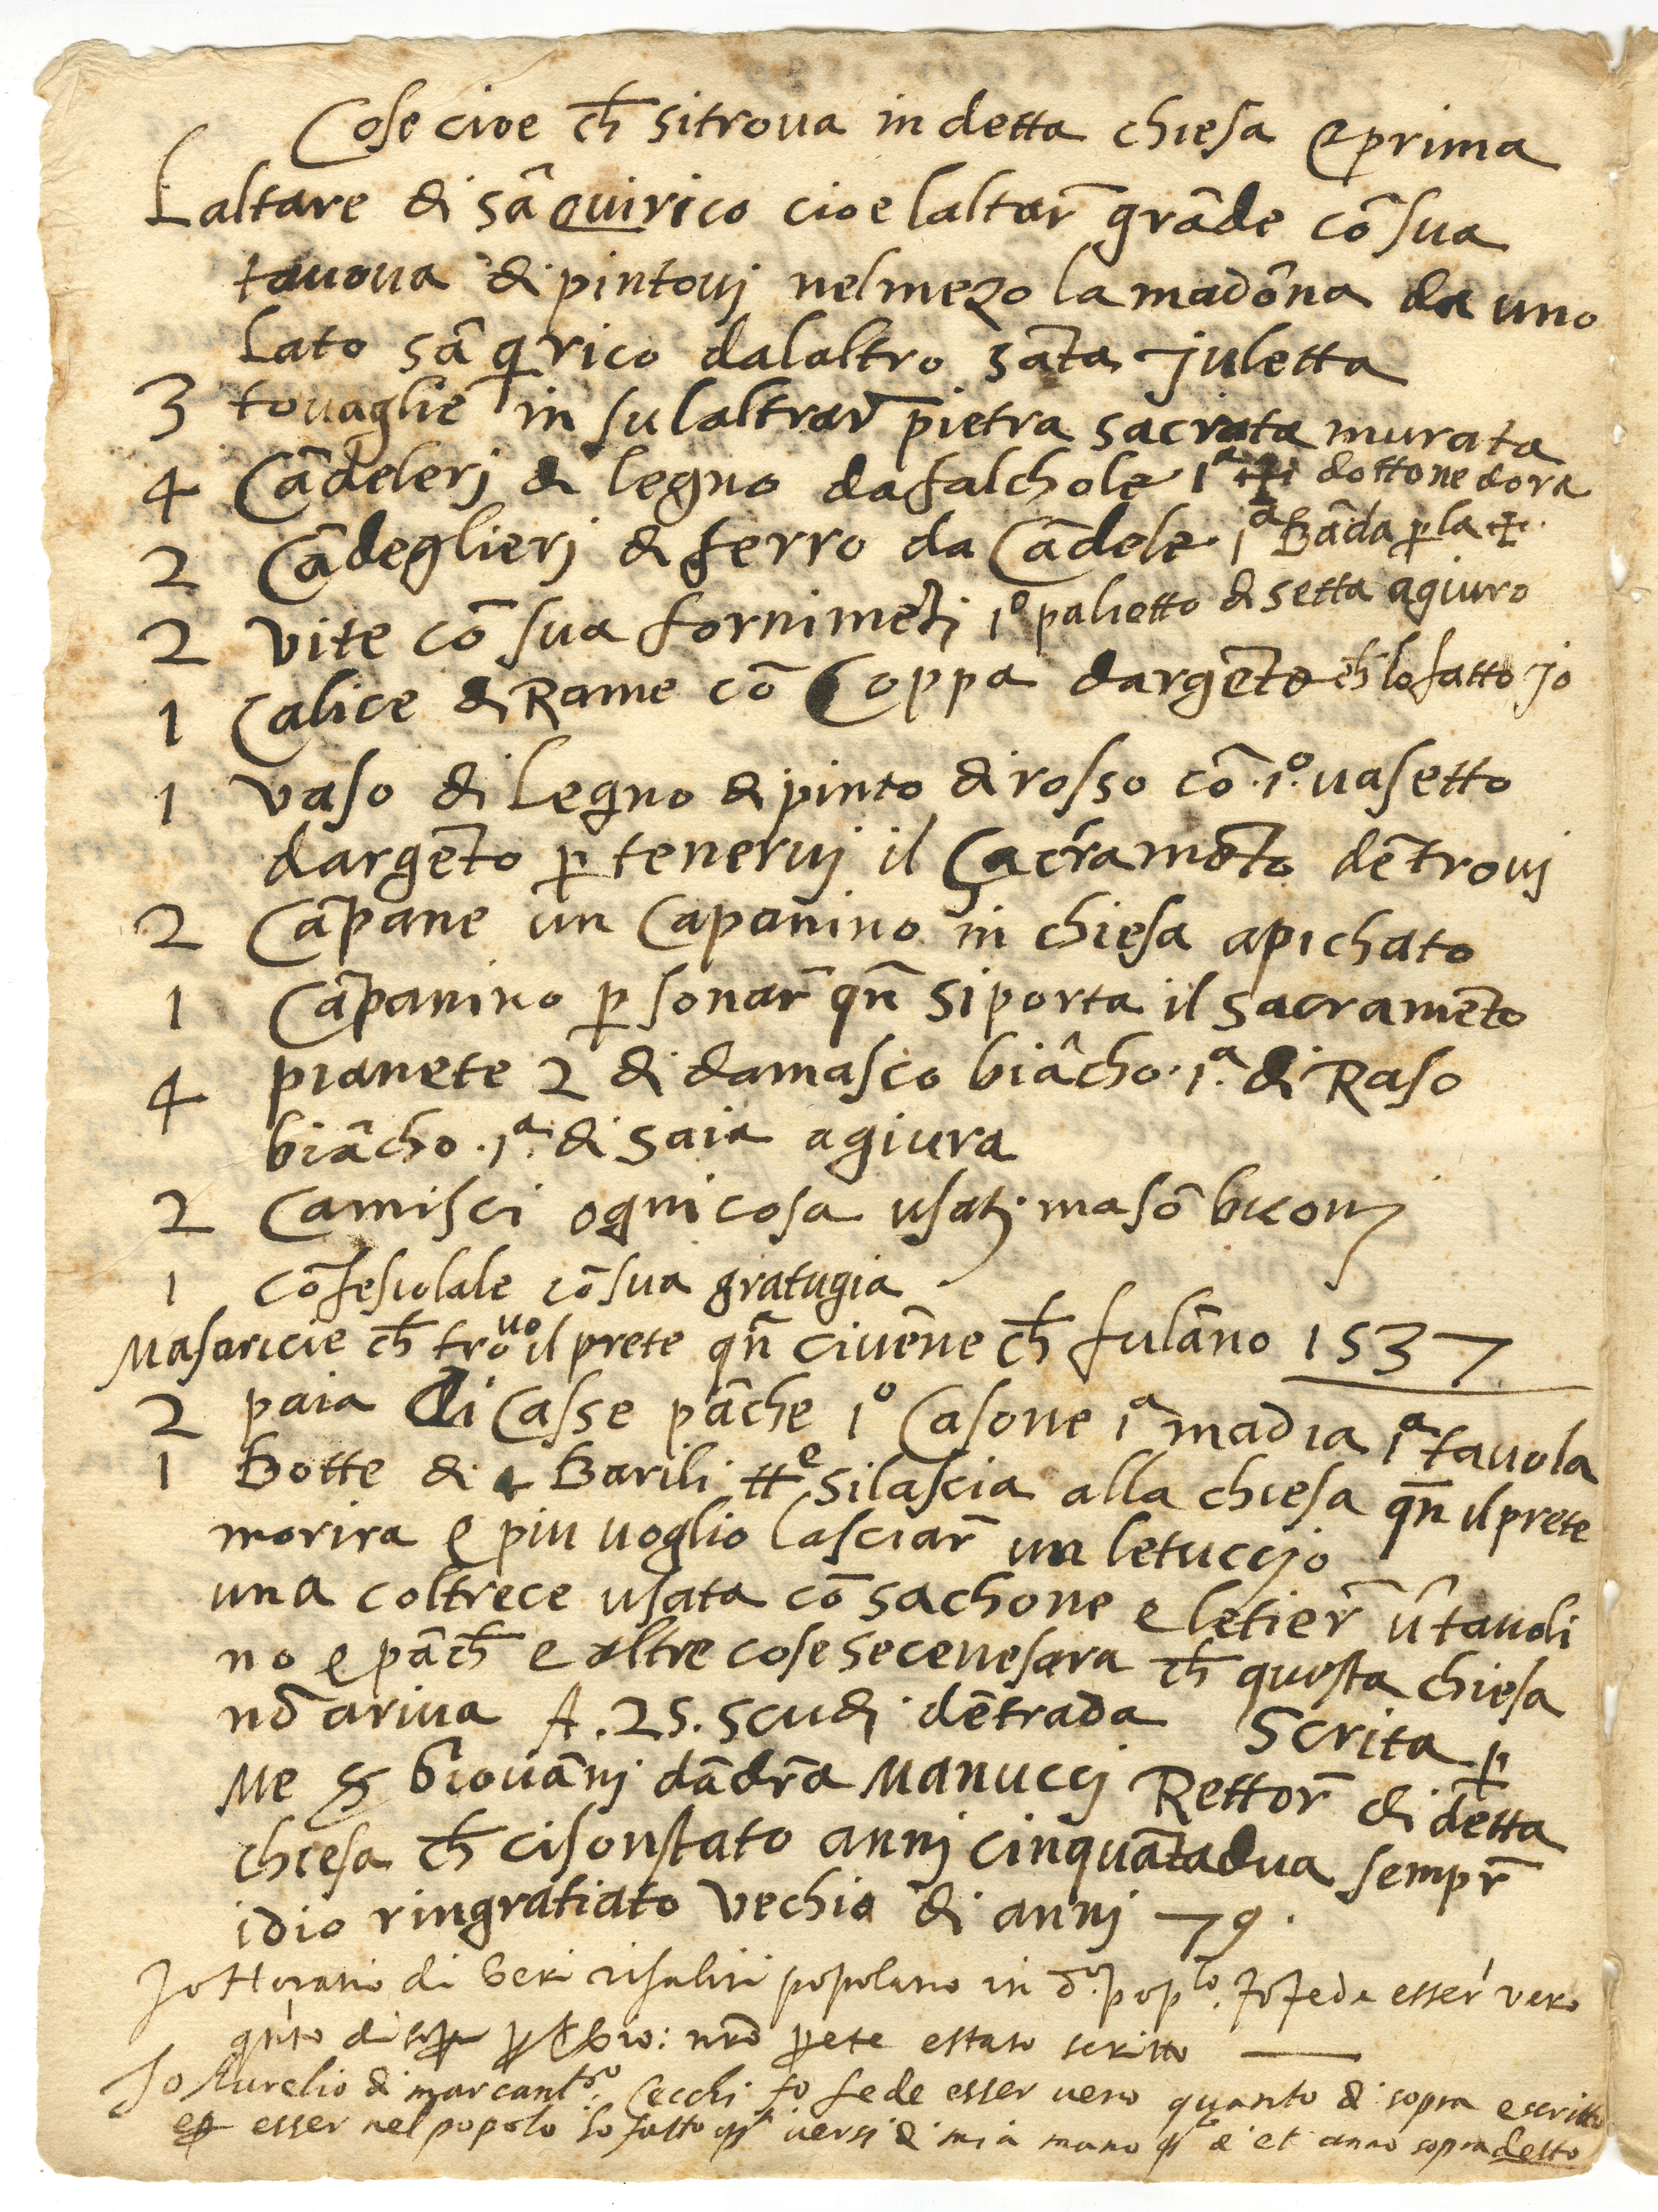 Cose cioe ch̄ sitroua in detta chiesa e prima
Laltare di sā quirico cioe laltar̄ grāde cō sua
tauoua dipintouj nelmezo la madōna da uno
Lato sā qrico dalaltro sāta Juletta
3 touaglie in sulaltrar̄ pietra sacrata murata
4 Cādelerj di legno dafalchole 1ᵃ ✝ dottone dora
2 Cādeglierj di ferro da Cādele 1ᵃ Bāda ꝑla ✝.
2 vite cō sua fornimētj 1º paliotto di setta agiuro
1 Calice di Rame cō Coppa dargēto ch̄ lo fatto Jo
1 vaso di Legno dipinto dirosso cō .1º. uasetto
dargēto ꝑ teneruj il Sacramēto dētrouj
2 Cāpane un Capanino in chiesa apichato
1 Cāpanino ꝑ sonar̄ qn̄ siporta il sacramēto
4 pianete 2 di damasco biācho .1ᵃ. di Raso
biācho .1ᵃ. di saia agiura
2 Camisci ognicosa usatj masō buonj
1 cōfesiolale cō sua gratugia
Masaricie ch̄ trouo il prete qn̄ ciuēne ch̄ fulāno 1537
2 paia di Casse pāche 1º Casone 1ᵃ madia 1ᵃ tauola
1 Botte di 4 Barili ttᵉ silascia alla chiesa qn̄ il prete
morira e piu uoglio lasciar̄ un letuccjo
una coltrece usata cō sachone e letier̄ ū tauoli
no e pāch̄ e altre cose secenesara ch̄ questa chiesa
nō ariua A .25. scudi dētrada Scrita ꝑ
Me S Giouānj dādrā Manuccj Rettor̄ di detta
chiesa ch̄ cisonstato annj cinquātadua sempr̄
idio ringratiato vechio di annj 79.
Jo Horatio di Geri risaliti popolano in dº. popˡº. fo fede esser vero
qnto di sopª nrō prete estato scritto
Jo Aurelio di marcantº. Cecchi fo fede esser uero quanto di sopra escritto
esser nel popolo ho fatto uersi di mia mano et anno sopradetto